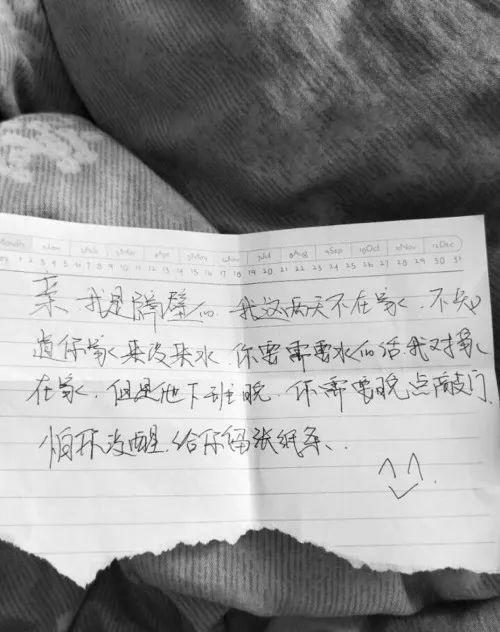 Month 1Jan 2Feb 3Mar 4Apr 5May 6Jun 7Jul 8Aug 9Sep 10Oct 11Nov 12Dec
1 2 3 4 5 6 7 8 9 10 11 12 13 14 15 16 17 18 19 20 21 22 23 24 25 26 27 28 29 30 31
亲.我是障壁的.我这两天不在家.不知
道你家来没来水.你要需要水的话我对象
在家.但是他下班晚.你需要晚点敲门.
怕你没醒.给你留张纸条.